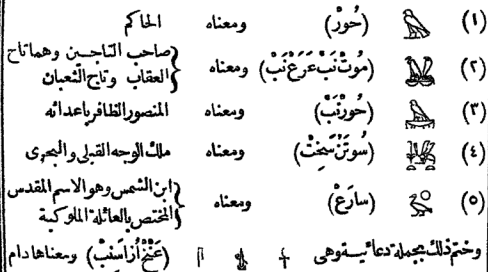 (١) (حُورْ) ومعناه الحاكم
(٢) (مُوتْ نَبْ عَرَعْ نَبْ) ومعناه {صاحب التاجين وهما تاج العقاب وتاج الثعبان
(٣) (حُورْنَبْ) ومعناه المنصور الظافر باعدائه
(٤) (سُوتَنْ سَخِتْ) ومعناه ملك الوجه القبلى والبحرى
(٥) (سارَعْ) ومعناه {ابن الشمس وهو الاسم المقدس المختص بالعائلة الملوكية
وختم ذلك بجملة دعائية وهى (عَنْخْ أُزَاسَنْبْ) ومعناها دام